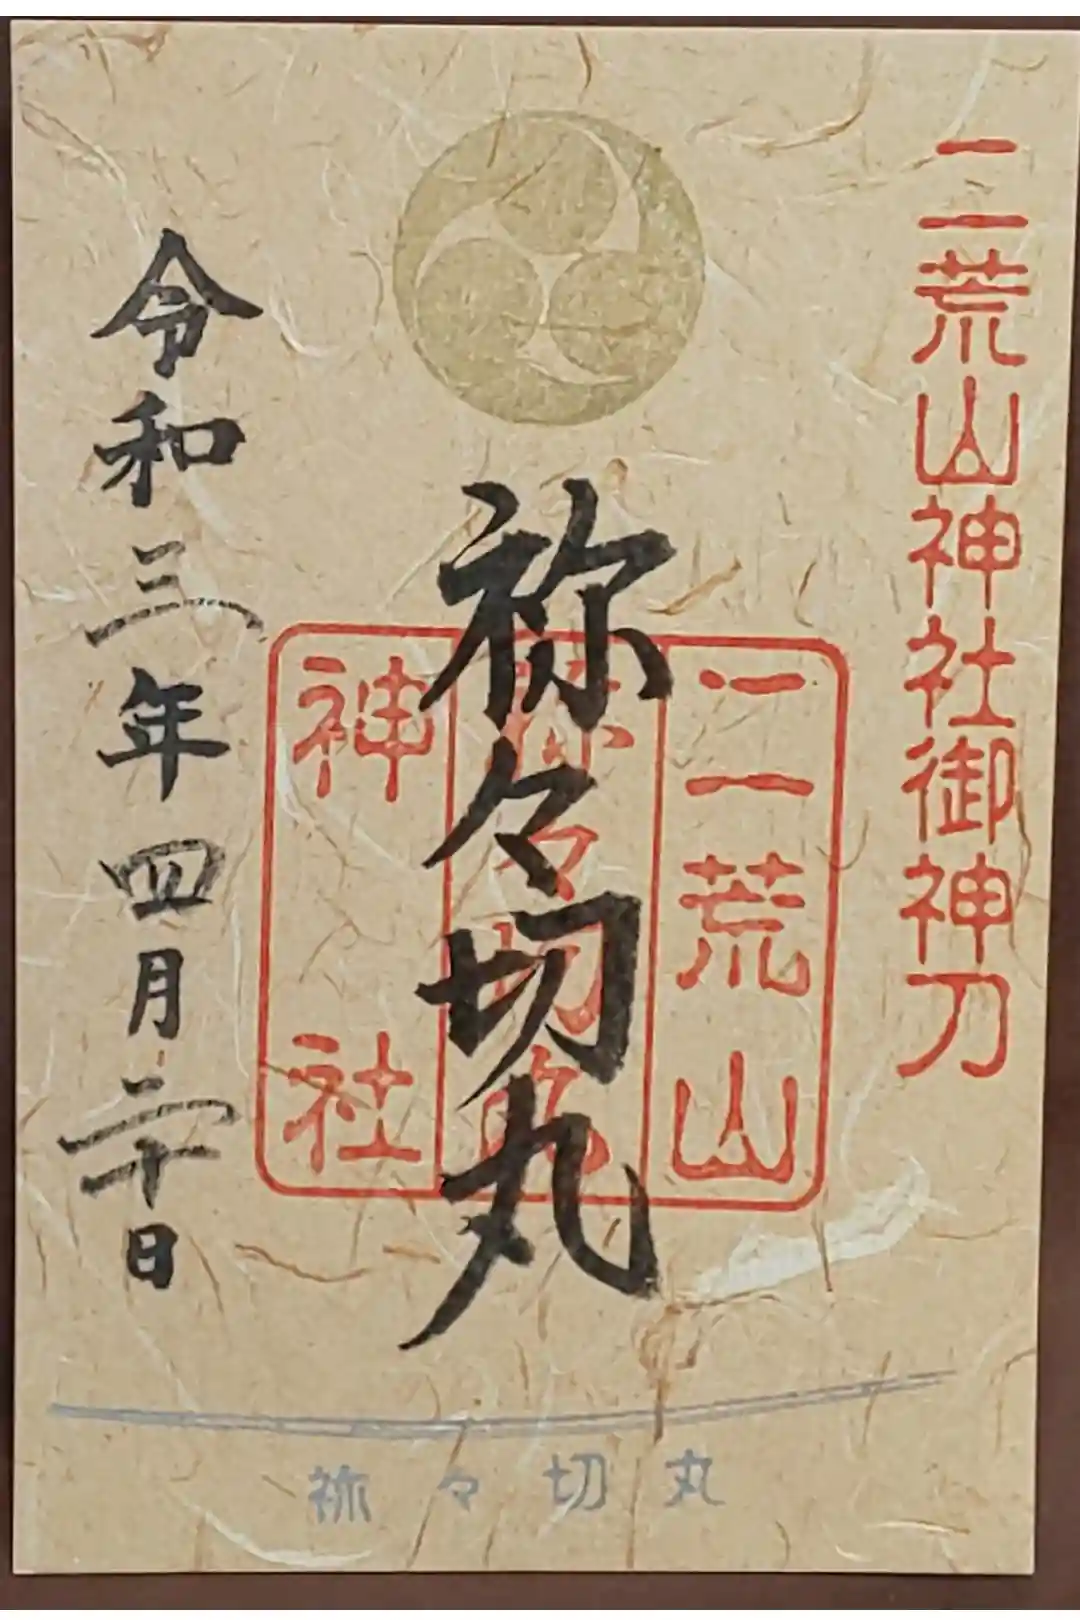 二荒山神社御神刀
祢々切丸
二荒山
祢々切丸
神社
令和三年四月二十日
祢々切丸